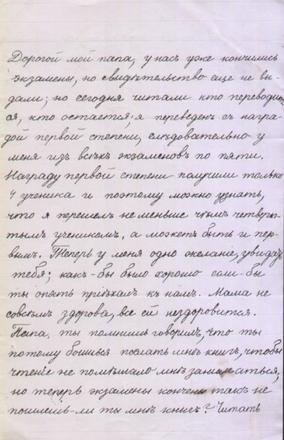 Дорогой мой папа, у насъ уже кончились
экзамены, но свидѣтельство еще не вы-
дали; но сегодня читали кто переводит-
ся, кто остается; я переведен съ награ-
дой первой степени, слѣдовательно у
меня изъ всѣхъ экзаменовъ по пяти.
Награду первой степени получили только
4 ученика и поэтому можно узнать,
что я перешелъ не меньше чѣмъ четвер-
тымъ ученикомъ, а можетъ быть и пер-
вымъ. Теперь у меня одно желаніе, увидать
тебя; какъ-бы было хорошо если бы
ты опять пріѣхалъ къ намъ. Мама не
совсѣмъ здорова, все ей нездоровится.
Папа, ты помнишь говорилъ, что ты
потому боишься послать мнѣ книгъ, чтобы
чтеніе не помѣшало мнѣ заниматься,
но теперь экзамены кончены такъ не
пошлешь-ли ты мнѣ книгъ? Читать